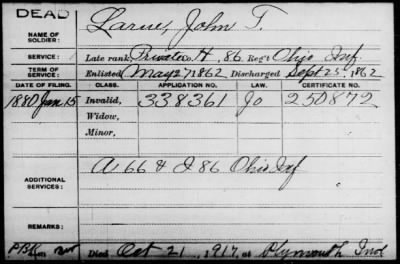 DEAD
NAME OF SOLDIER: Larue, John T.
SERVICE: Late rank, Private Co. H, 86 Reg't Ohio Inf
TERM OF SERVICE: Enlisted May 27, 1862, Discharged Sept 25, 1862
DATE OF FILING. CLASS. APPLICATION NO. LAW. CERTIFICATE NO.
1880 Jan. 15 Invalid, 338361 250872
Widow,
Minor,
ADDITIONAL SERVICES: A 66 & I 86 Ohio Inf
REMARKS:
Died Oct 21, 1917, at Plymouth Ind